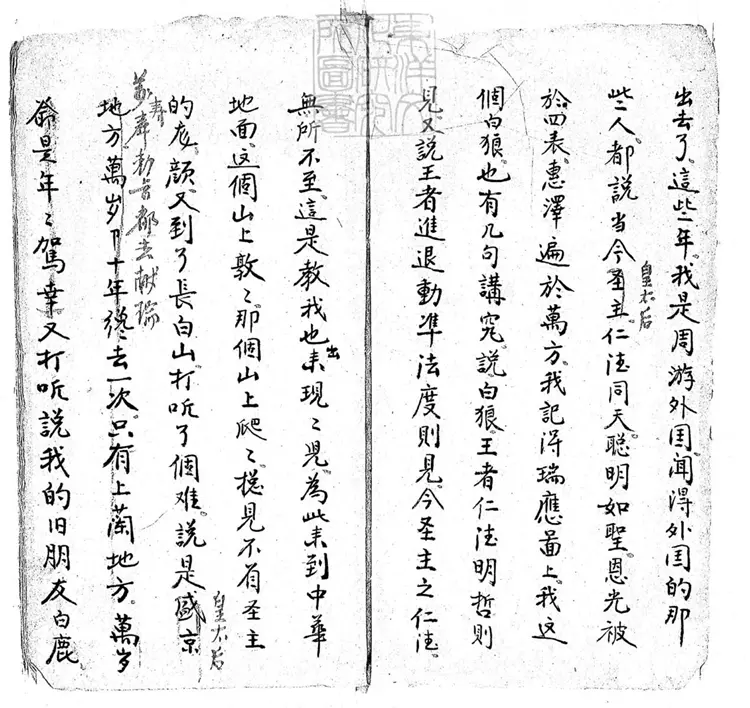 出去了。這些年。我是周游外囯。闻得外囯的那
些人。都說当今圣主。仁德同天。聪明如聖。恩光被
皇太后
於四表。惠澤遍於萬方。我記得瑞應啚上。我这
個白狼。也有几句講究。說白狼。王者仁德明哲則
見。又說王者進退動準法度則見。今圣主之仁德。
無所不至。這是教我也出来現〻児。為此来到中華
地面。这個山上敦〻。那個山上爬〻。搃見不着圣主
的龙顔。又到了長白山打听了個难。說是盛京
皇太后
都去献瑞
地方萬岁十年終去一次。只有上蘭地方。萬岁
爺是年〻駕幸。又打听說我的旧朋友白鹿